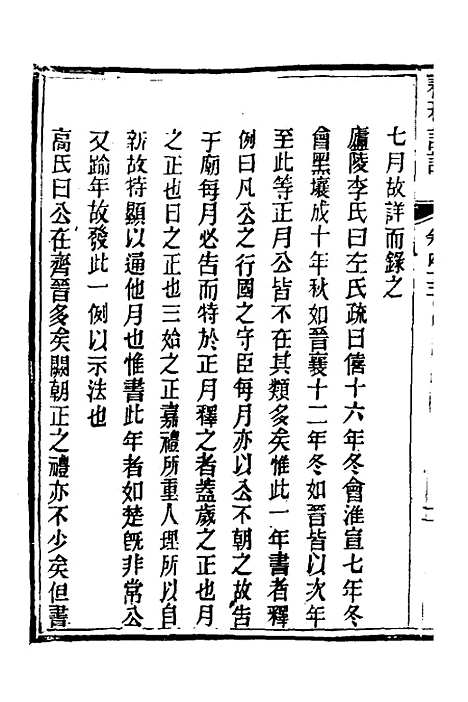 七月故詳而錄之
廬陵李氏曰左氏疏曰僖十六年冬會淮宣七年冬
會黑壤成十年秋如晉襄十二年冬如晉皆以次年
至此等正月公皆不在其類多矣惟此一年書者釋
例曰凡公之行國之守臣每月亦以公不朝之故告
于廟每月必告而特於正月釋之者蓋歲之正也月
之正也日之正也三始之正嘉禮所重人理所以自
新故特顯以通他月也惟書此年者如楚旣非常公
又踰年故發此一例以示法也
高氏曰公在齊晉多矣闕朝正之禮亦不少矣但書